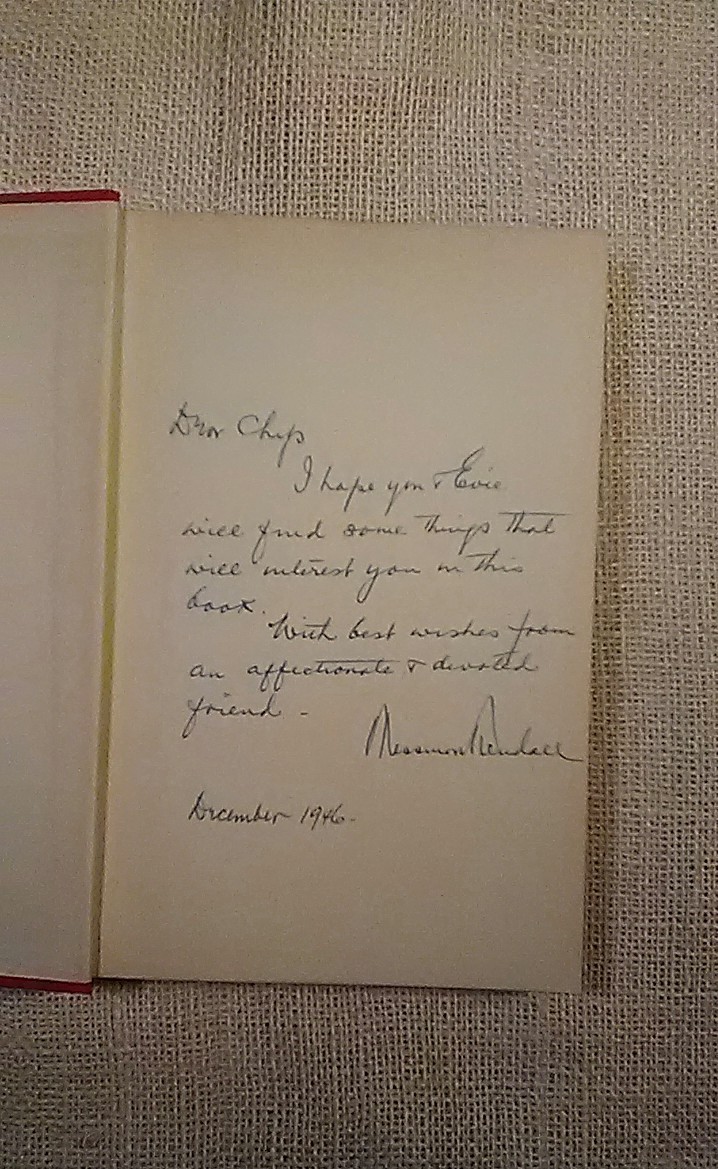 Dear Chips
I hope you & Evie
will find some things that
will interest you in this
book.
With best wishes from
an affectionate & devoted
friend -
Messmore Kendall
December 1946.